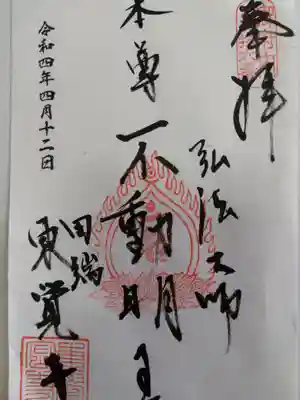 奉拝
弘法大師
本尊 不動明王
田端
東覚寺
令和四年四月十二日